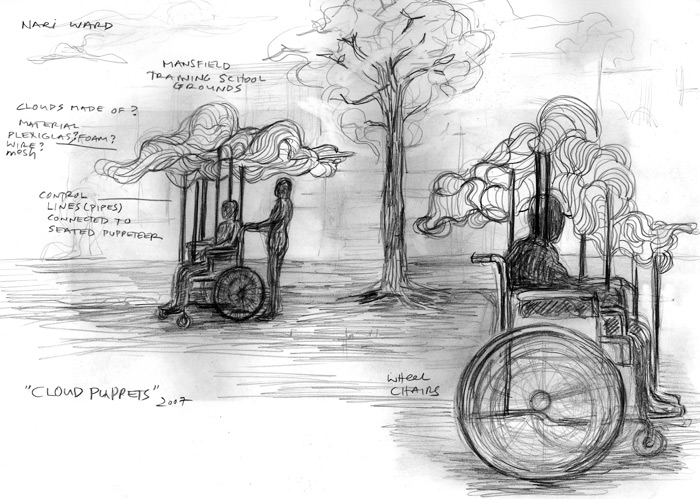 NARI WARD
MANSFIELD
TRAINING SCHOOL
GROUNDS
CLOUDS MADE OF?
MATERIAL
PLEXIGLAS? FOAM?
WIRE?
MOSH
CONTROL
LINES (PIPES)
CONNECTED TO
SEATED PUPPETEER
"CLOUD PUPPETS"
2007
WHEEL
CHAIRS